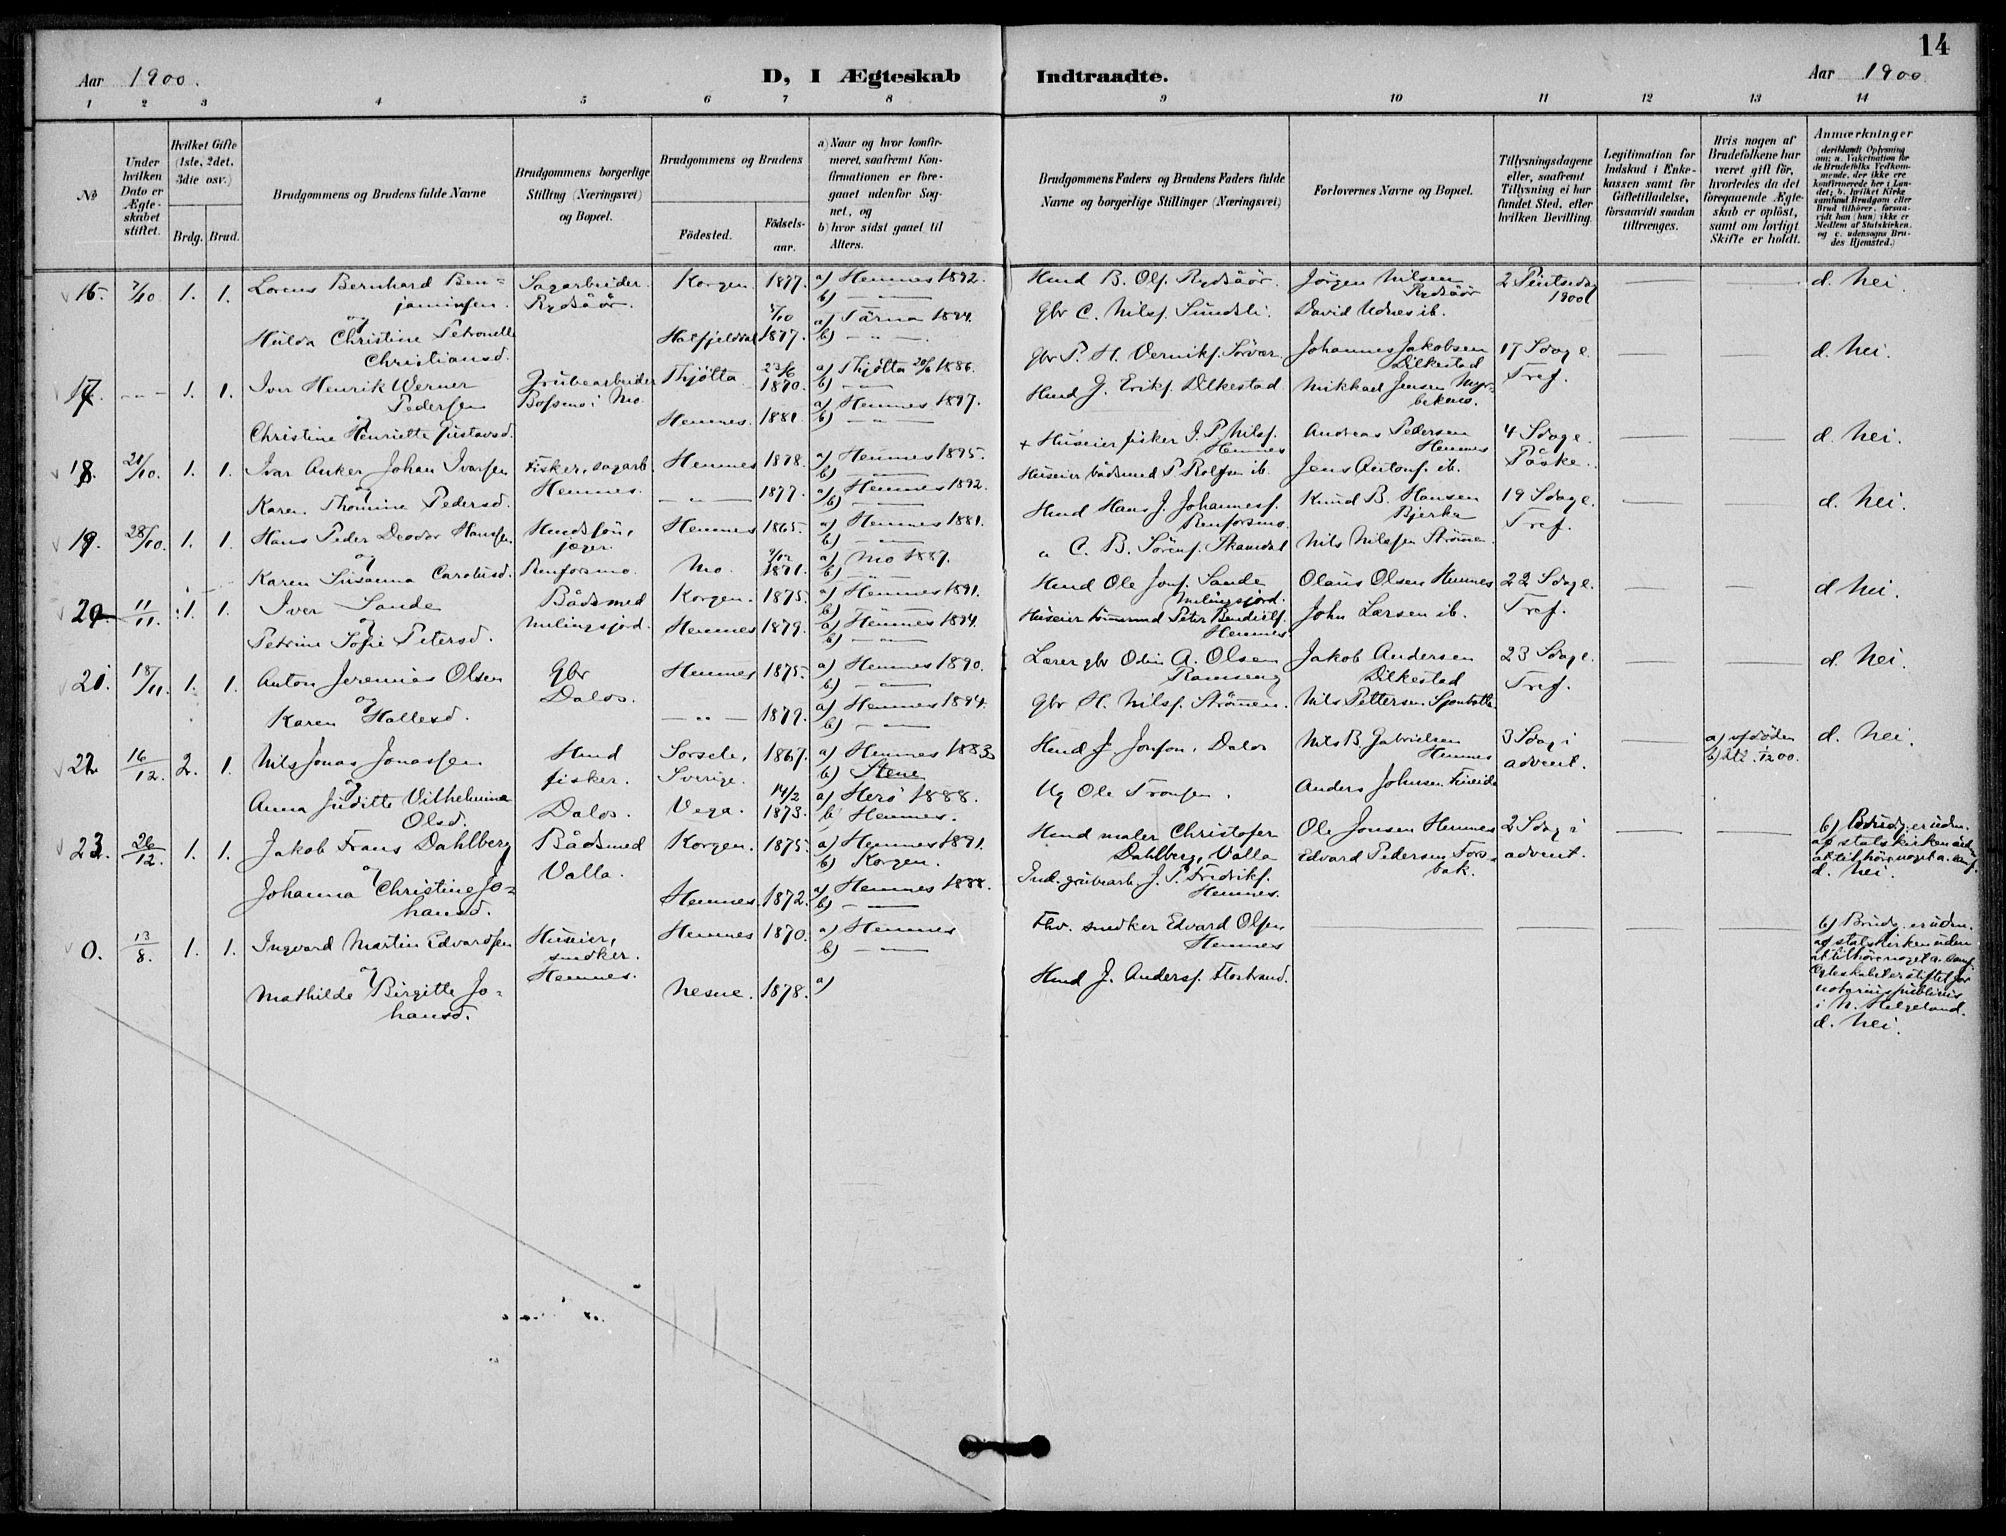 14
Aar 1900.
D, I Ægteskab Indtraadte.
Aar 1900
1 2 3 4 5 6 7 8 9 10 11 12 13 14
No
Under hvilken Dato er Ægteskabet stiftet.
Hvilket Gifte (1ste, 2det, 3die osv.)
Brdg. Brud.
Brudgommens og Brudens fulde Navne
Brudgommens borgerlige Stilling (Næringsvei) og Bopæl.
Brudgommens og Brudens
Fødested.
Fødselsaar.
a) Naar og hvor konfirmeret, saafremt Konfirmationen er foregaaet udenfor Sognet, og
b) hvor sidst gaaet til Alters.
Brudgommens Faders og Brudens Faders fulde Navne og borgerlige Stillinger (Næringsvei)
Forlovernes Navne og Bopæl.
Tillysningsdagene eller, saafremt Tillysning ei har fundet Sted, efter hvilken Bevilling.
Legitimation for Indskud i Enkekassen samt for Giftetilladelse, forsaavidt saadan tiltrænges.
Hvis nogen af Brudefolkene har været gift før, hvorledes da det foregaaende Ægteskab er opløst, samt om lovligt Skifte er holdt.
Anmærkninger (deriblandt Oplysning om: a. Vakcination for de Brudefolks Vedkommende, der ikke ere konfirmerede her i Landet; b. hvilket Kirkesamfund Brudgom eller Brud tilhører, forsaavidt han (hun) ikke er Medlem af Statskirken, og c. udensogns Brudes Hjemsted.)
16. 7/10 1. 1. Lorens Bernhard Benjaminsen. Sagarbeider Rydsåör. Korgen 1877. a) Hemnes 1892. b) — " — Husmd B. Ols. Rydsåör. Jörgen Nilsen Rydsåör 2 Pintsedag 1900 d. Nei.
og
Hulda Christine Petronelle Christiansd. Hatfjelddal 5/10 1877. a) Tärna 1894. b) — " — Gbr C. Nilss. Sundsli. David Udnes ib.
17. - - - 1. 1. Iver Henrik Werner Pedersen Grubearbeider Bossmo i Mo. Thjötta 23/6 1870. a) Thjötta 20/6 1886. b) — " — Gbr P. H. Verniks. Sörvær. Johannes Jakobsen Dilkestad 17 Sdag e. Tref. d. Nei.
Christine Henriette Gustavsd. Hemnes. 1881 a) Hemnes 1897. b) — " — Husmd J. Eriks. Dilkestad Mikkael Jensen Myrbekmo.
18. 21/10. 1. 1. Ivar Anker Johan Ivarsen Fisker, sagarb. Hemnes. Hemnes 1878. a) Hemnes 1895. b) — " — + Huseier fisker I. P. Nilss. Hemnes Andreas Pedersen Hemnes 4 Sdag e. Påske. d. Nei.
og
Karen Thomine Pedersd. — " — 1877. a) Hemnes 1892. b) — " — Huseier bådsmd P. Rolfsen ib. Jens Antons. ib.
19. 28/10. 1. 1. Hans Peder Deodor Hansen Husmdsön, jæger. Renforsmo. Hemnes 1865. a) Hemnes 1881. b) — " — Husmd Hans J. Johanness. Renforsmo. Knud B. Hansen Bjerka 19 Sdag e. Tref. d. Nei.
og
Karen Susanna Carolusd. Mo. 1871. a) Mo 1887. b) — " — " C. B. Sörens. Skamdal Nils Nilssen Strömen
20. 11/11. 1. 1. Iver Sande Bådsmed Milingsjord. Korgen. 1875. a) Hemnes 1891. b) — " — Husmd Ole Jons. Sande Milingsjord. Olaus Olsen Hemnes 22 Sdag e. Tref. d. Nei.
og
Petrine Sofie Petersd. Hemnes 1879. a) Hemnes 1894. b) — " — Huseier tömmermd Peter Bendiks. Hemnes John Larsen ib.
21. 18/11. 1. 1. Anton Jeremias Olsen Gbr Dalos. Hemnes 1875. a) Hemnes 1890. b) — " — Lærer gbr Odin A. Olsen Ramseng Jakob Andersen Dilkestad 23 Sdag e. Tref. d. Nei.
og
Karen Hallesd. — " — 1879. a) Hemnes 1894. b) — " — Gbr H. Nilss. Strömen. Nils Pettersen Sjonbotten
22. 16/12. 2. 1. Nils Jonas Jonassen Husmd fisker. Dalos. Sorsele, Sverige. 1867. a) Hemnes 1883 b) Stene Husmd J. Jonson. Dalos Nils B. Gabrielsen Hemnes 3 Sdag i advent. a) v/döden d. Nei.
og
Anna Juditte Vilhelmina Olsd. Vega. 14/2 1873. a) Herö 1888. b) Hemnes. Ug Ole Tronsen. Anders Johnsen Fineide
23. 26/12. 1. 1. Jakob Frans Dahlberg Bådsmed Valla. Korgen. 1875. a) Hemnes 1891. b) Korgen. Husmd maler Christofer Dahlberg, Valla Ole Jonsen Hemnes 2 Sdag i advent. b) Brudg. er uden. af statskirken uden at tilhøre noget a. samf. d. Nei.
og
Johanna Christine Johansd. Hemnes. 1872. a) Hemnes 1888. b) — " — Ind. grubearb. J. P. Fredriks. Hemnes. Edvard Pedersen Forsbak.
0. 13/8. 1. 1. Ingvard Martin Edvardsen Huseier, snedker. Hemnes. Hemnes 1870. a) Hemnes b) — " — Fhv. snedker Edvard Olsen Hemnes b) Brudg. er uden. af statskirken uden at tilhøre noget a. samf. Ægteskabet er stiftet for notarius publicus i N. Helgeland. d. Nei.
og
Mathilde Birgitte Johansd. Nesne. 1878. a) Husmd J. Anderss. Flostrand.